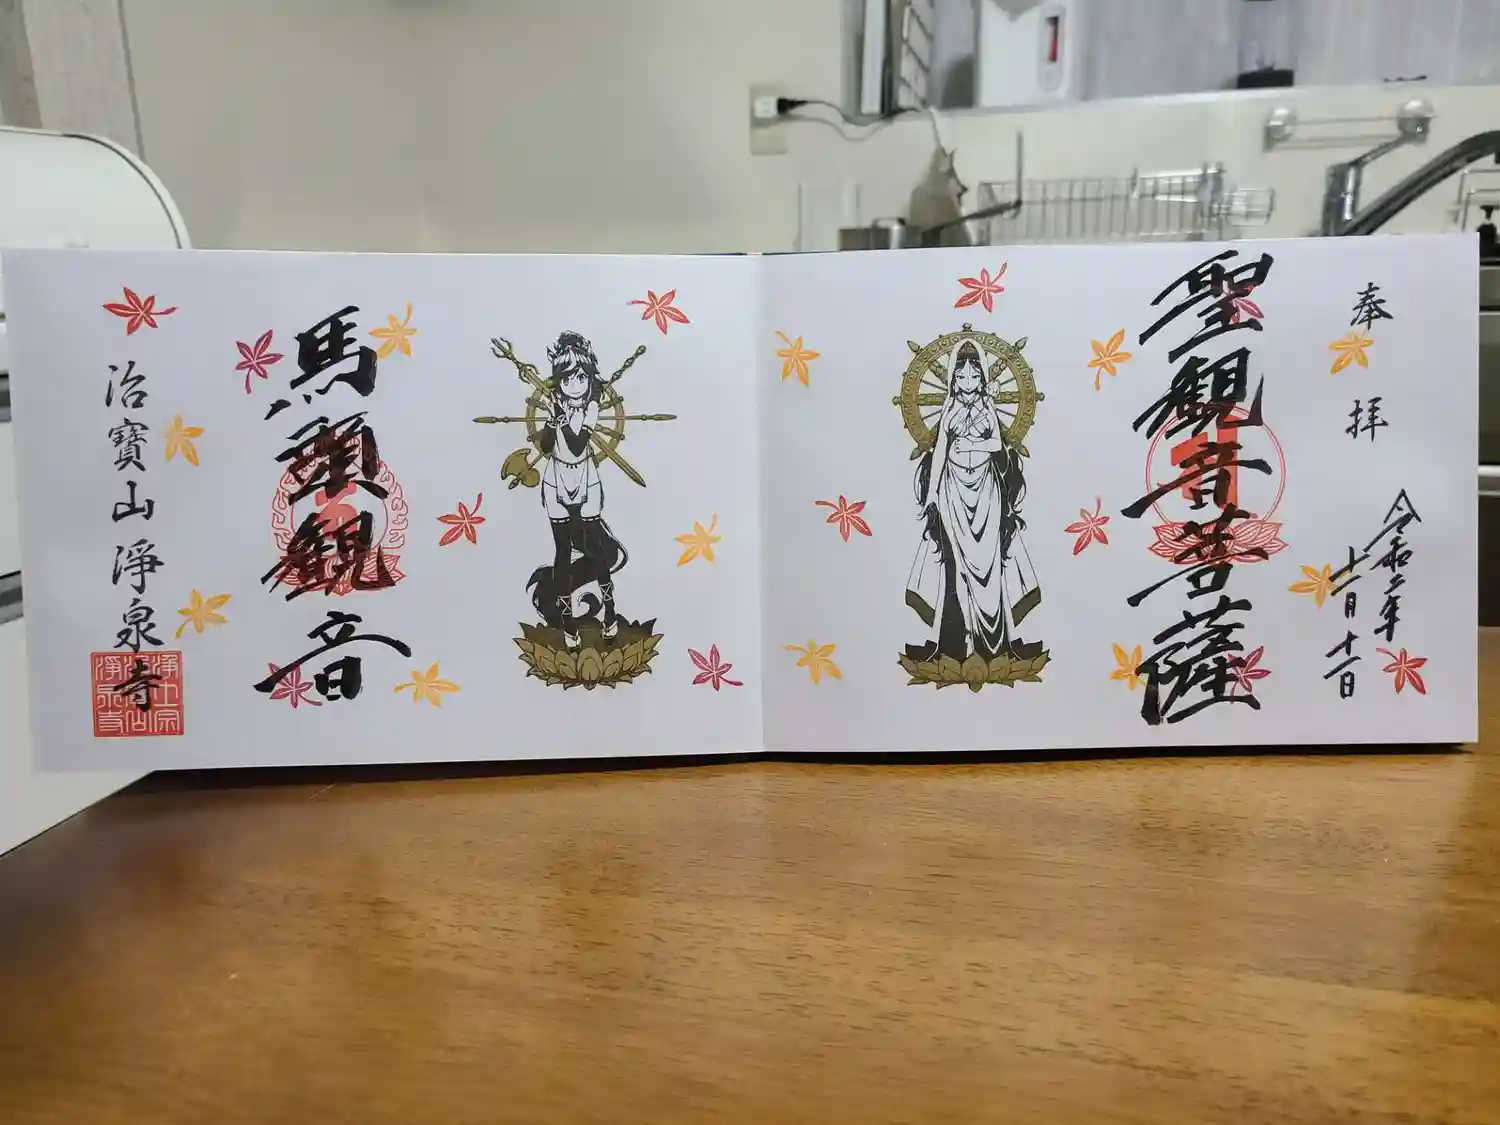 奉拝
令和二年
十一月十一日
聖観音菩薩
馬頭観音
治寶山淨泉寺
浄土宗
淨泉寺